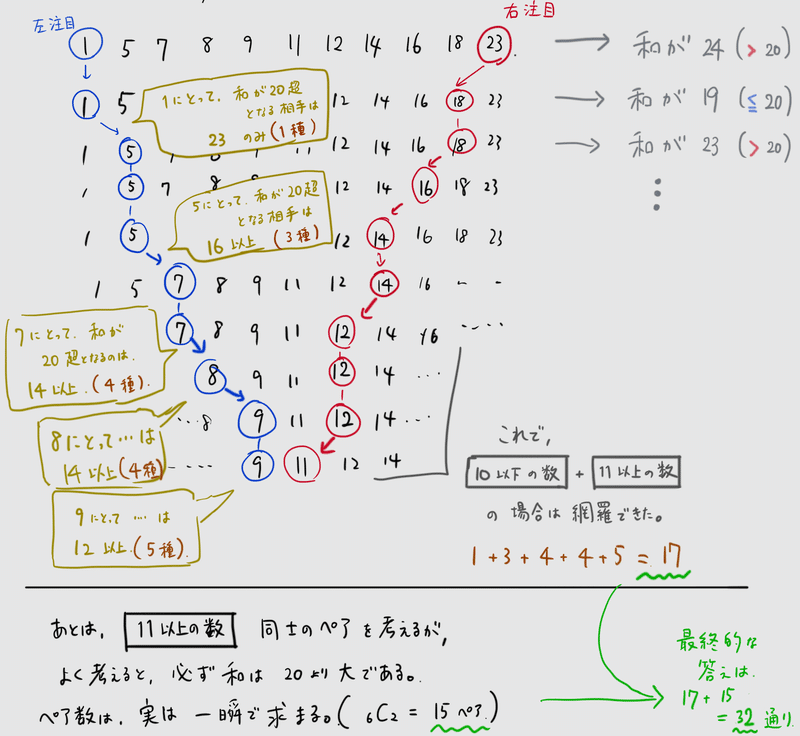 左注目
右注目
1 5 7 8 9 11 12 14 16 18 23 → 和が 24 (> 20)
1 5 12 14 16 18 23 → 和が 19 (≦ 20)
1にとって、和が20超
となる相手は
23 のみ(1種)
1 5 12 14 16 18 23 → 和が 23 (> 20)
1 5 7 12 14 16 18 23
5にとって、和が20超
となる相手は
16以上 (3種)
1 5 12 14 16 18 23
1 5 7 8 9 11 12 14 16 - -
7 8 9 11 12 14 16 ····
7にとって、和が
20超となるのは、
14以上.(4種).
8 9 11 12 14 ···
···8 9 11 12 14 ···
8にとって…は
14以上(4種)
···· 9 11 12 14
9にとって … は
12以上.(5種).
これで,
10以下の数 + 11以上の数
の場合は網羅できた。
1+3+4+4+5 = 17
あとは、 11以上の数 同士のペアを考えるが,
よく考えると、必ず和は 20より大である。
ペア数は、実は一瞬で求まる。( ₆C₂ = 15ペア.)
最終的な
答えは.
17+15
= 32通り